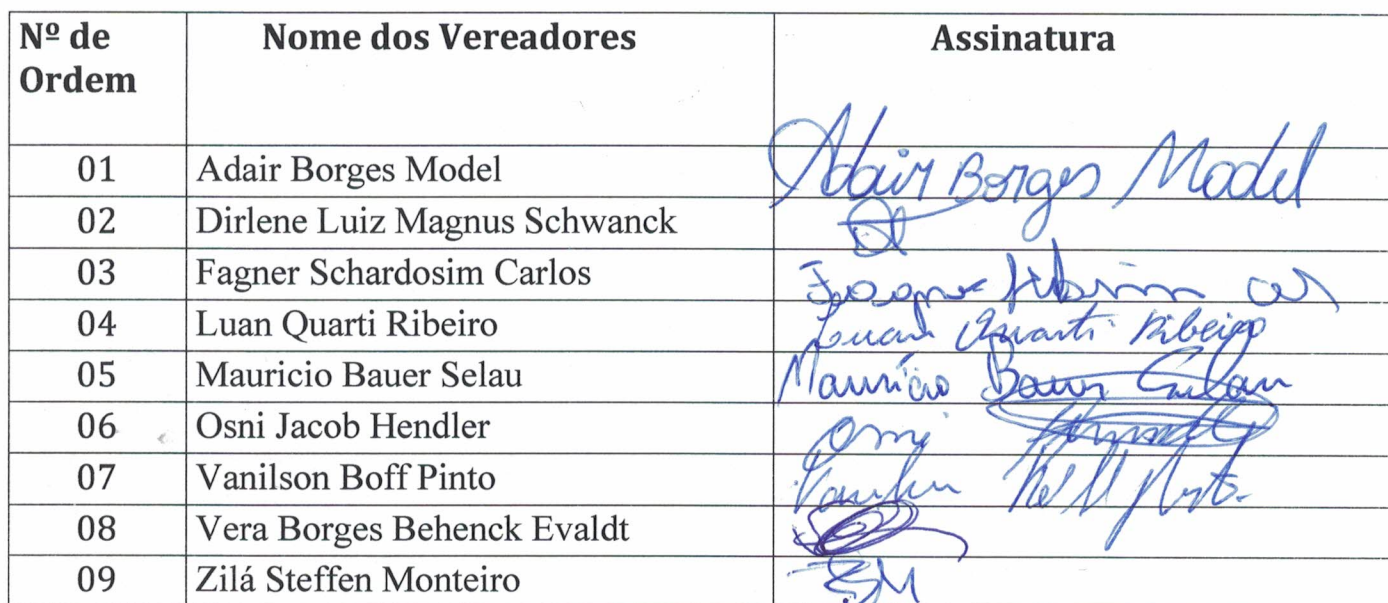 Nº de Ordem Nome dos Vereadores Assinatura
01 Adair Borges Model Adair Borges Model
02 Dirlene Luiz Magnus Schwanck
03 Fagner Schardosim Carlos Fagner
04 Luan Quarti Ribeiro Luan Quarti Ribeiro
05 Mauricio Bauer Selau Maurício Bauer Selau
06 Osni Jacob Hendler Osni
07 Vanilson Boff Pinto
08 Vera Borges Behenck Evaldt
09 Zilá Steffen Monteiro